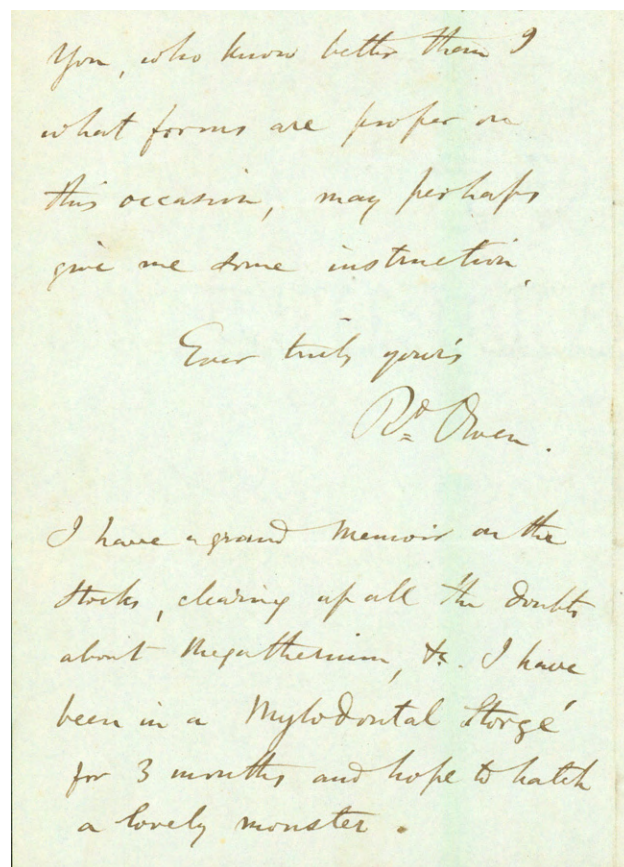 You, who know better than I
what forms are proper on
this occasion, may perhaps
give me some instruction.
Ever truly your's
Rd Owen.
I have a grand Memoir on the
Stocks, clearing up all the doubts
about Megatherium, &c. I have
been in a Mylodontal Storgé
for 3 months and hope to hatch
a lovely monster.